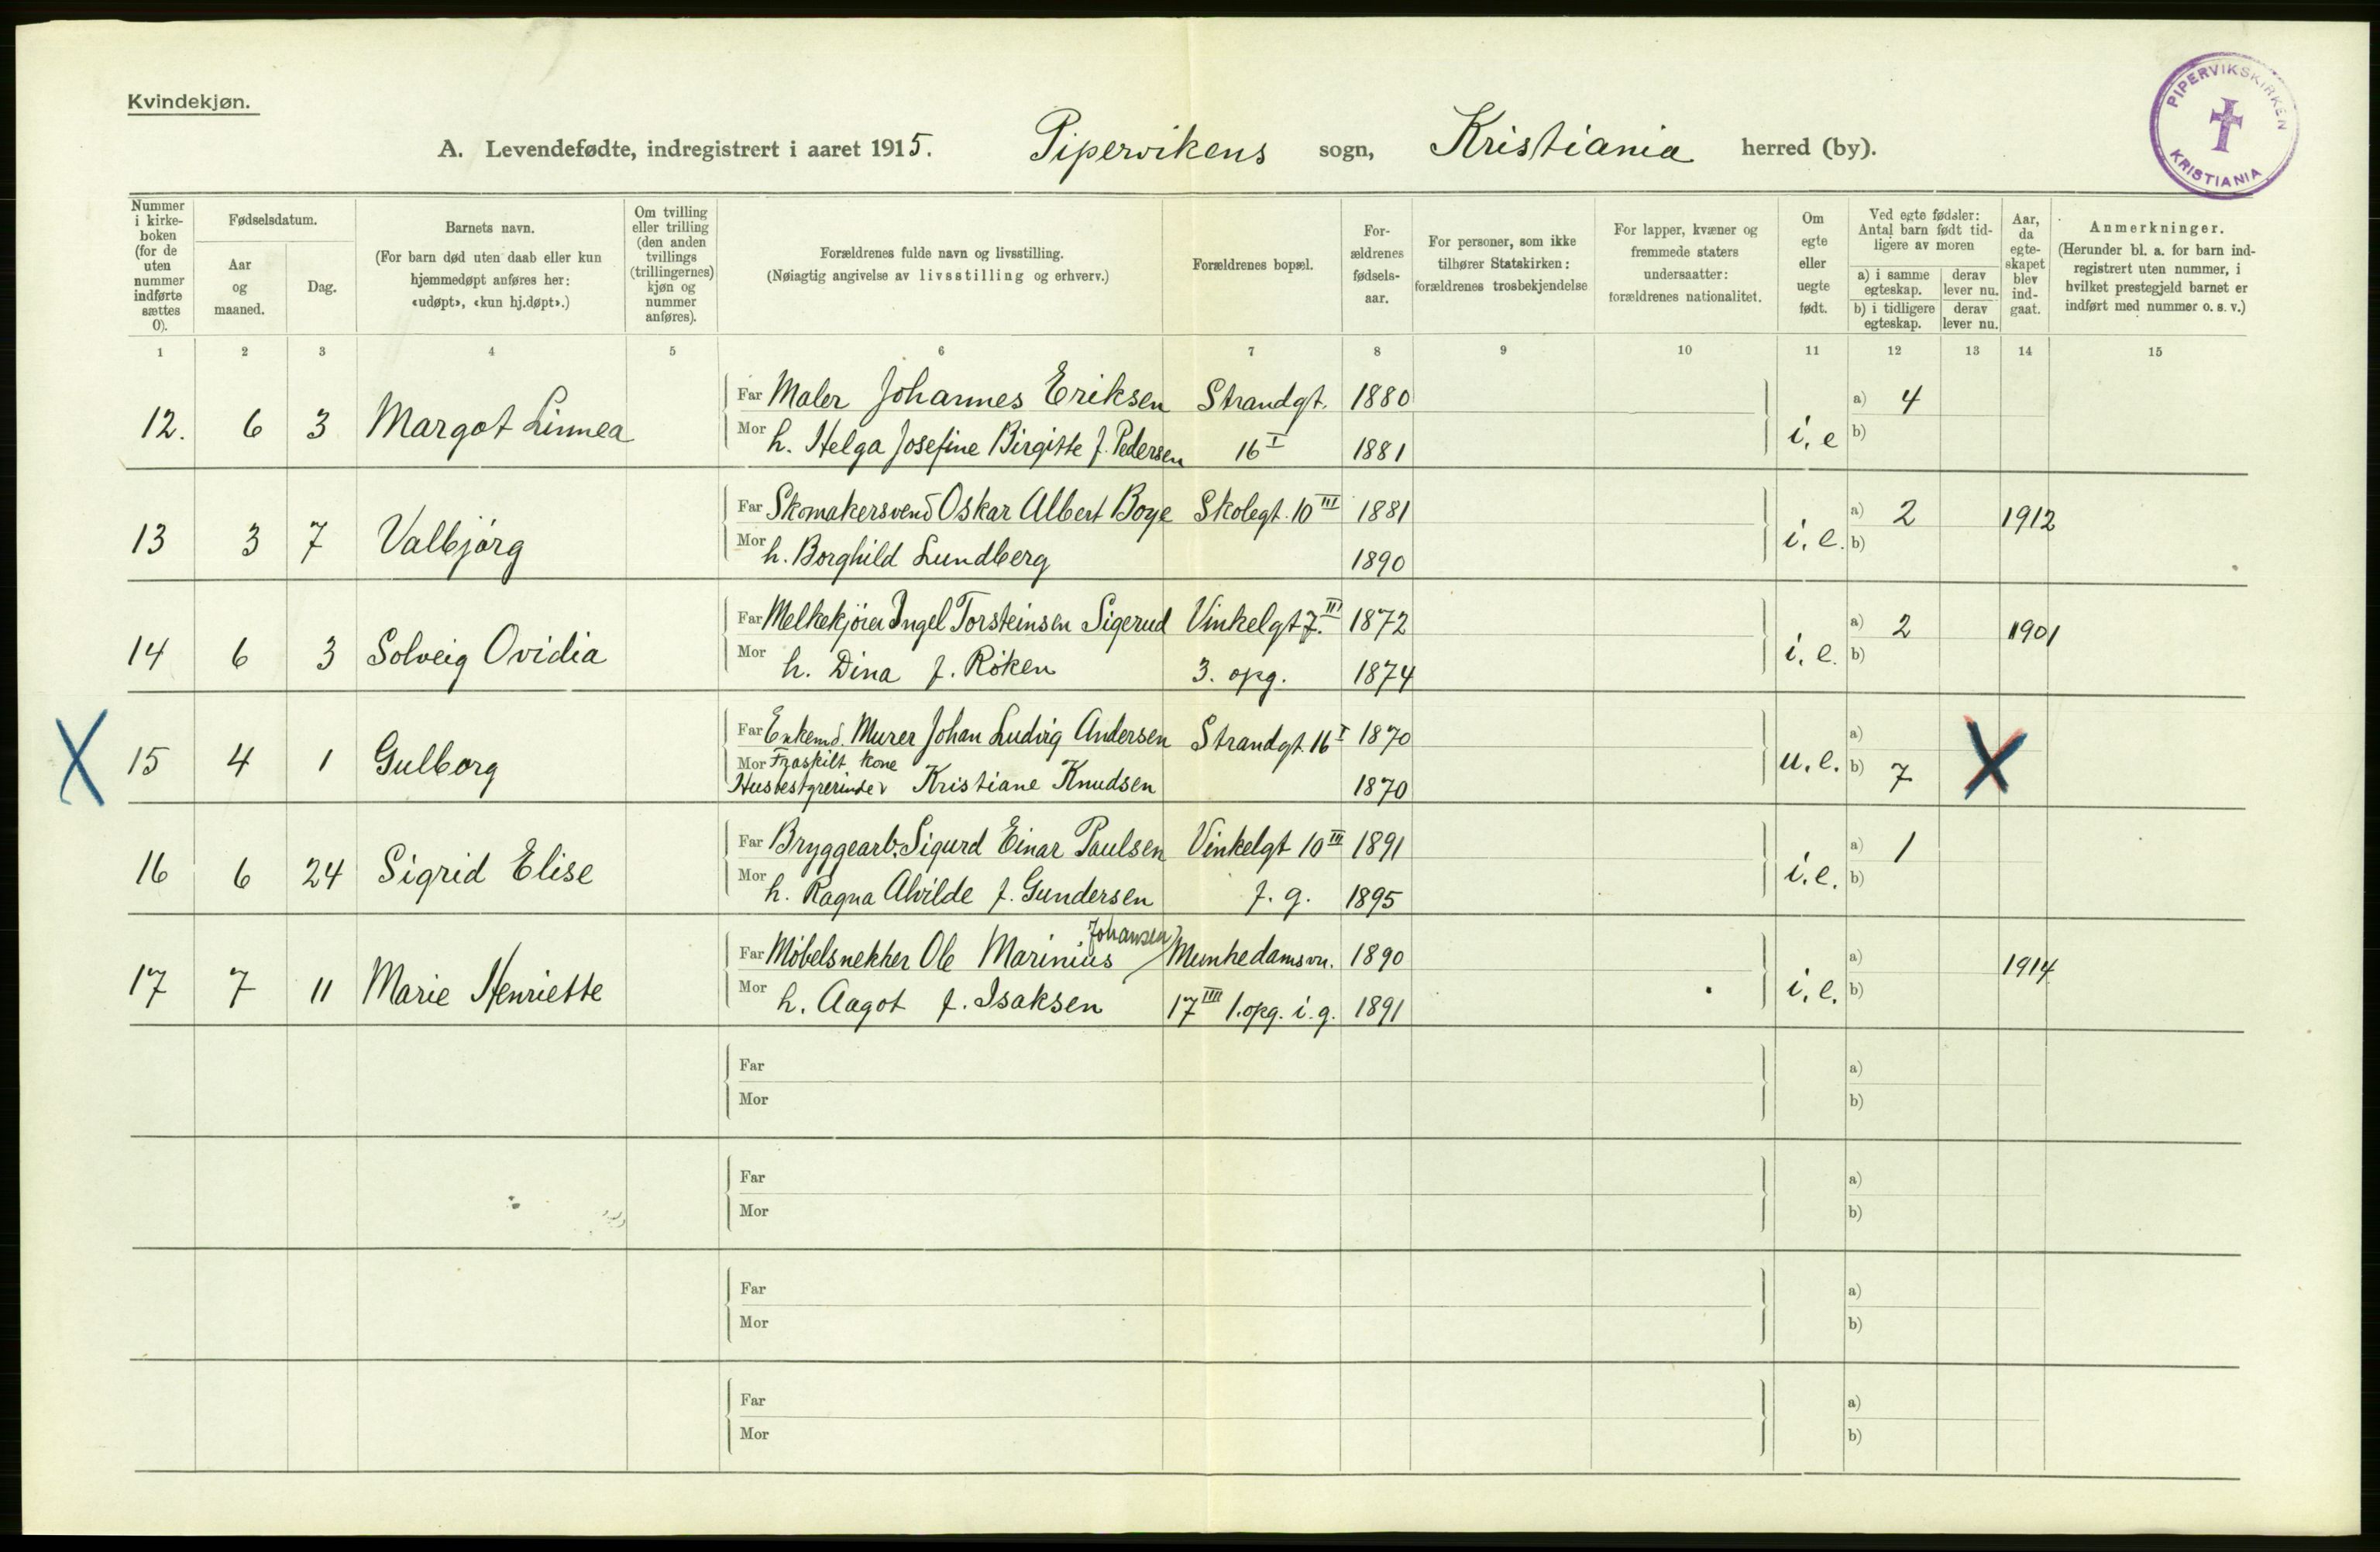 Kvindekjøn.
A. Levendefødte, indregistrert i aaret 1915. Pipervikens sogn, Kristiania herred (by).
PIPERVIKSKIRKEN KRISTIANIA
Nummer i kirkeboken (for de uten nummer indførte sættes 0).
Fødselsdatum.
Aar og maaned.
Dag.
Barnets navn.
(For barn død uten daab eller kun hjemmedøpt anføres her: «udøpt», «kun hj.døpt».)
Om tvilling eller trilling (den anden tvillings (trillingernes) kjøn og nummer anføres).
Forældrenes fulde navn og livsstilling.
(Nøiagtig angivelse av livsstilling og erhverv.)
Forældrenes bopæl.
For-ældrenes fødsels-aar.
For personer, som ikke tilhører Statskirken: forældrenes trosbekjendelse
For lapper, kvæner og fremmede staters undersaatter: forældrenes nationalitet.
Om egte eller uegte født.
Ved egte fødsler: Antal barn født tid-ligere av moren
a) i samme egteskap.
derav lever nu.
b) i tidligere egteskap.
derav lever nu.
Aar, da egte-skapet blev ind-gaat.
Anmerkninger.
(Herunder bl. a. for barn ind-registrert uten nummer, i hvilket prestegjeld barnet er indført med nummer o. s. v.)
1 2 3 4 5 6 7 8 9 10 11 12 13 14 15
12. 6 3 Margot Linnea
Far Maler Johannes Eriksen Strandgt. 1880 a) 4
Mor h. Helga Josefine Birgitte f. Pedersen 16 I 1881 i. e b)
13 3 7 Valbjørg
Far Skomakersvend Oskar Albert Boye Skolegt. 10 III 1881 a) 2 1912
Mor h. Borghild Lundberg 1890 i. e. b)
14 6 3 Solveig Ovidia
Far Melkekjører Ingel Torsteinsen Sigerud Vinkelgt 7. III 1872 a) 2 1901
Mor h. Dina f. Røken 3. opg. 1874 i. e. b)
X 15 4 1 Gulborg
Far Enkemd. Murer Johan Ludvig Andersen Strandgt. 16 I 1870 a)
Mor Fraskilt kone
Husbestyrerinde Kristiane Knudsen 1870 u. e. b) 7 X
16 6 24 Sigrid Elise
Far Bryggearb. Sigurd Einar Paulsen Vinkelgt 10 III 1891 a) 1
Mor h. Ragna Alvilde f. Gundersen f. g. 1895 i. e. b)
17 7 11 Marie Henriette
Johansen
Far Møbelsnekker Ole Marinius Munkedamsvn. 1890 a) 1914
Mor h. Aagot f. Isaksen 17 IIII 1. opg. i. g. 1891 i. e. b)
Far a)
Mor b)
Far a)
Mor b)
Far a)
Mor b)
Far a)
Mor b)